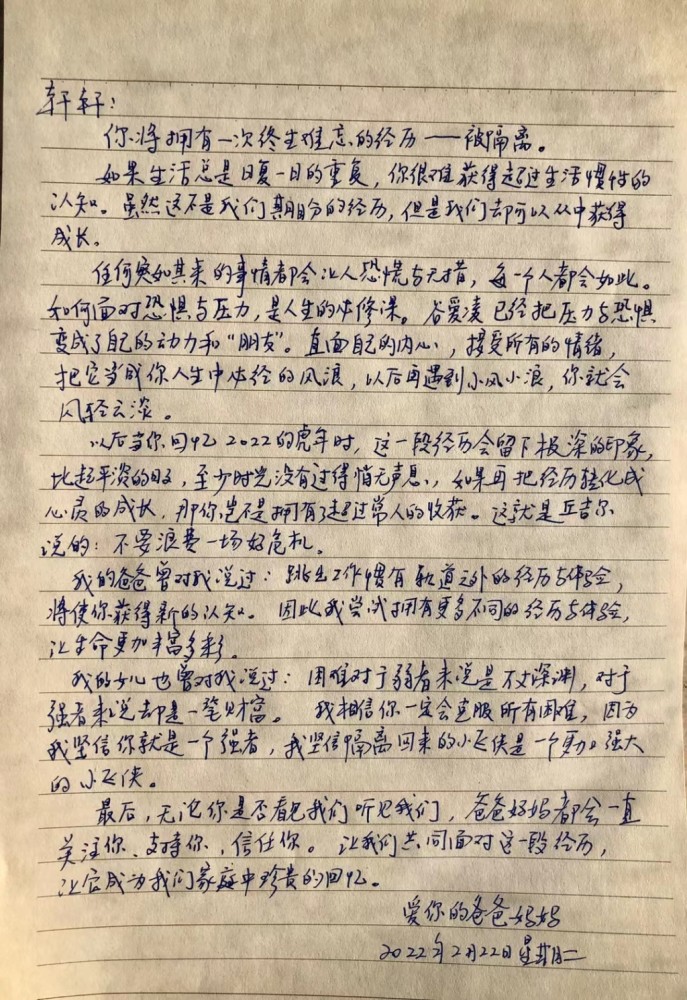 轩轩：
你将拥有一次终生难忘的经历——被隔离。
如果生活总是日复一日的重复，你很难获得超过生活惯性的
认知。虽然这不是我们期盼的经历，但是我们却可以从中获得
成长。
任何突如其来的事情都会让人恐慌与无措，每一个人都会如此。
如何面对恐惧与压力，是人生的必修课。谷爱凌已经把压力与恐惧
变成了自己的动力和“朋友”。直面自己的内心，接受所有的情绪，
把它当成你人生中必经的风浪，以后再遇到小风小浪，你就会
风轻云淡。
以后当你回忆2022的虎年时，这一段经历会留下极深的印象，
比起平淡的日子，至少时光没有过得悄无声息，如果再把经历转化成
心灵的成长，那你岂不是拥有了超过常人的收获。这就是丘吉尔
说的：不要浪费一场好危机。
我的爸爸曾对我说过：跳出工作惯有轨道之外的经历与体验，
将使你获得新的认知。因此我尝试拥有更多不同的经历与体验，
让生命更加丰富多彩。
我的女儿也曾对我说过：困难对于弱者来说是万丈深渊，对于
强者来说却是一笔财富。我相信你一定会克服所有困难，因为
我坚信你就是一个强者，我坚信隔离回来的小飞侠是一个更加强大
的小飞侠。
最后，无论你是否看见我们听见我们，爸爸妈妈都会一直
关注你、支持你、信任你。让我们共同面对这一段经历，
让它成为我们家庭中珍贵的回忆。
爱你的爸爸妈妈
2022年2月22日星期二